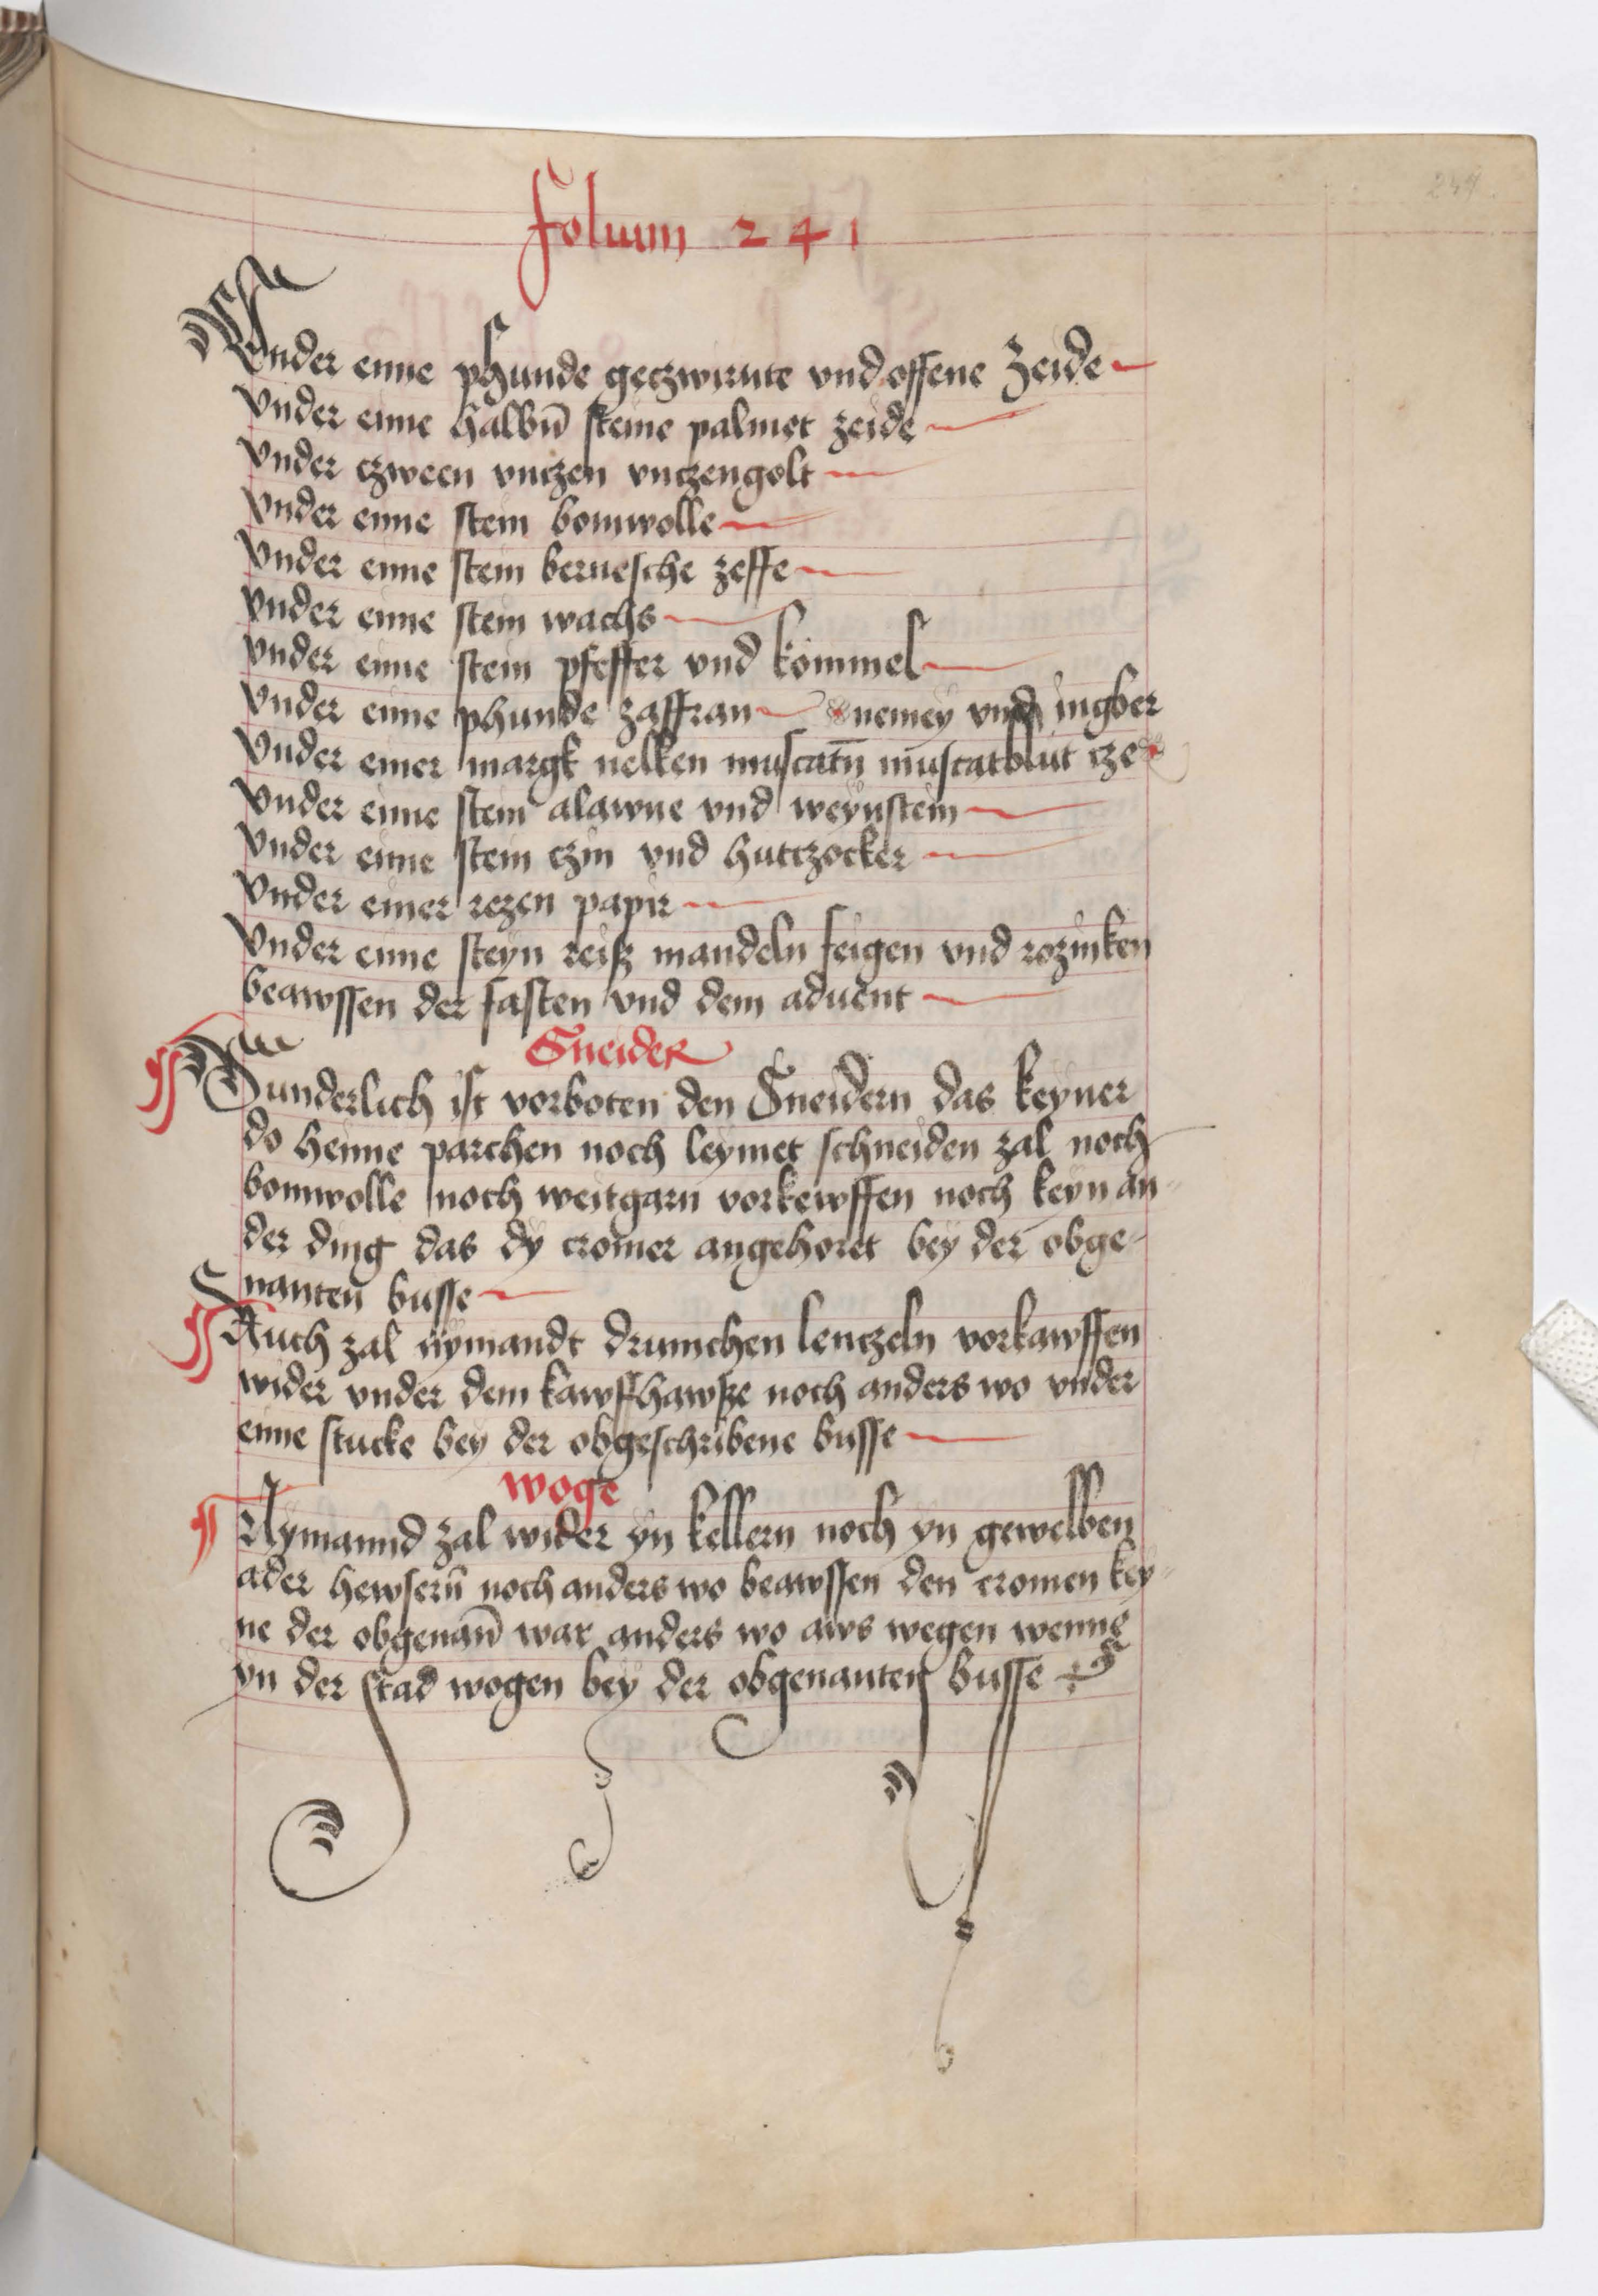 folium 241
244
Vnder eime phunde geczwirnte vnd offene zeide
Vnder eime halbn̄ steine palmet zeide
Vnder czween vnczen vnczengolt
Vnder eime stein bomwolle
Vnder eime stein bernesche zeffe
Vnder eime stein wachs
Vnder eime stein pfeffer vnd kömmel
Vnder eime phunde zaffran nemey vnd ingber
Vnder einer margk nelken muscatn̄ muscatblut cze
Vnder eime stein alawne vnd weynstein
Vnder eime stein czin vnd hutczocker
Vnder einer rezen papir
Vnder eime steyn reisz mandeln feigen vnd rozinken
beawssen der fasten vnd dem aduent
Sneider
Sunderlich ist vorboten den Sneidern das keyner
do heime parchen noch leymet schneiden zal noch
bomwolle noch weitgarn vorkewffen noch keyn an-
der ding das dy cromer angehoret bey der obge-
nanten busse
Auch zal nymandt drumchen lenczeln vorkawffen
wider vnder dem kawffhawsze noch anders wo vnder
eime stucke bey der obgeschribene busse
woge
Nymannd zal wider yn kellern noch yn gewelben
ader hewsern̄ noch anders wo beawssen den cromen key-
ne der obgenan̄ war anders wo aws wegen wenne
yn der stad wogen bey der obgenanten busse